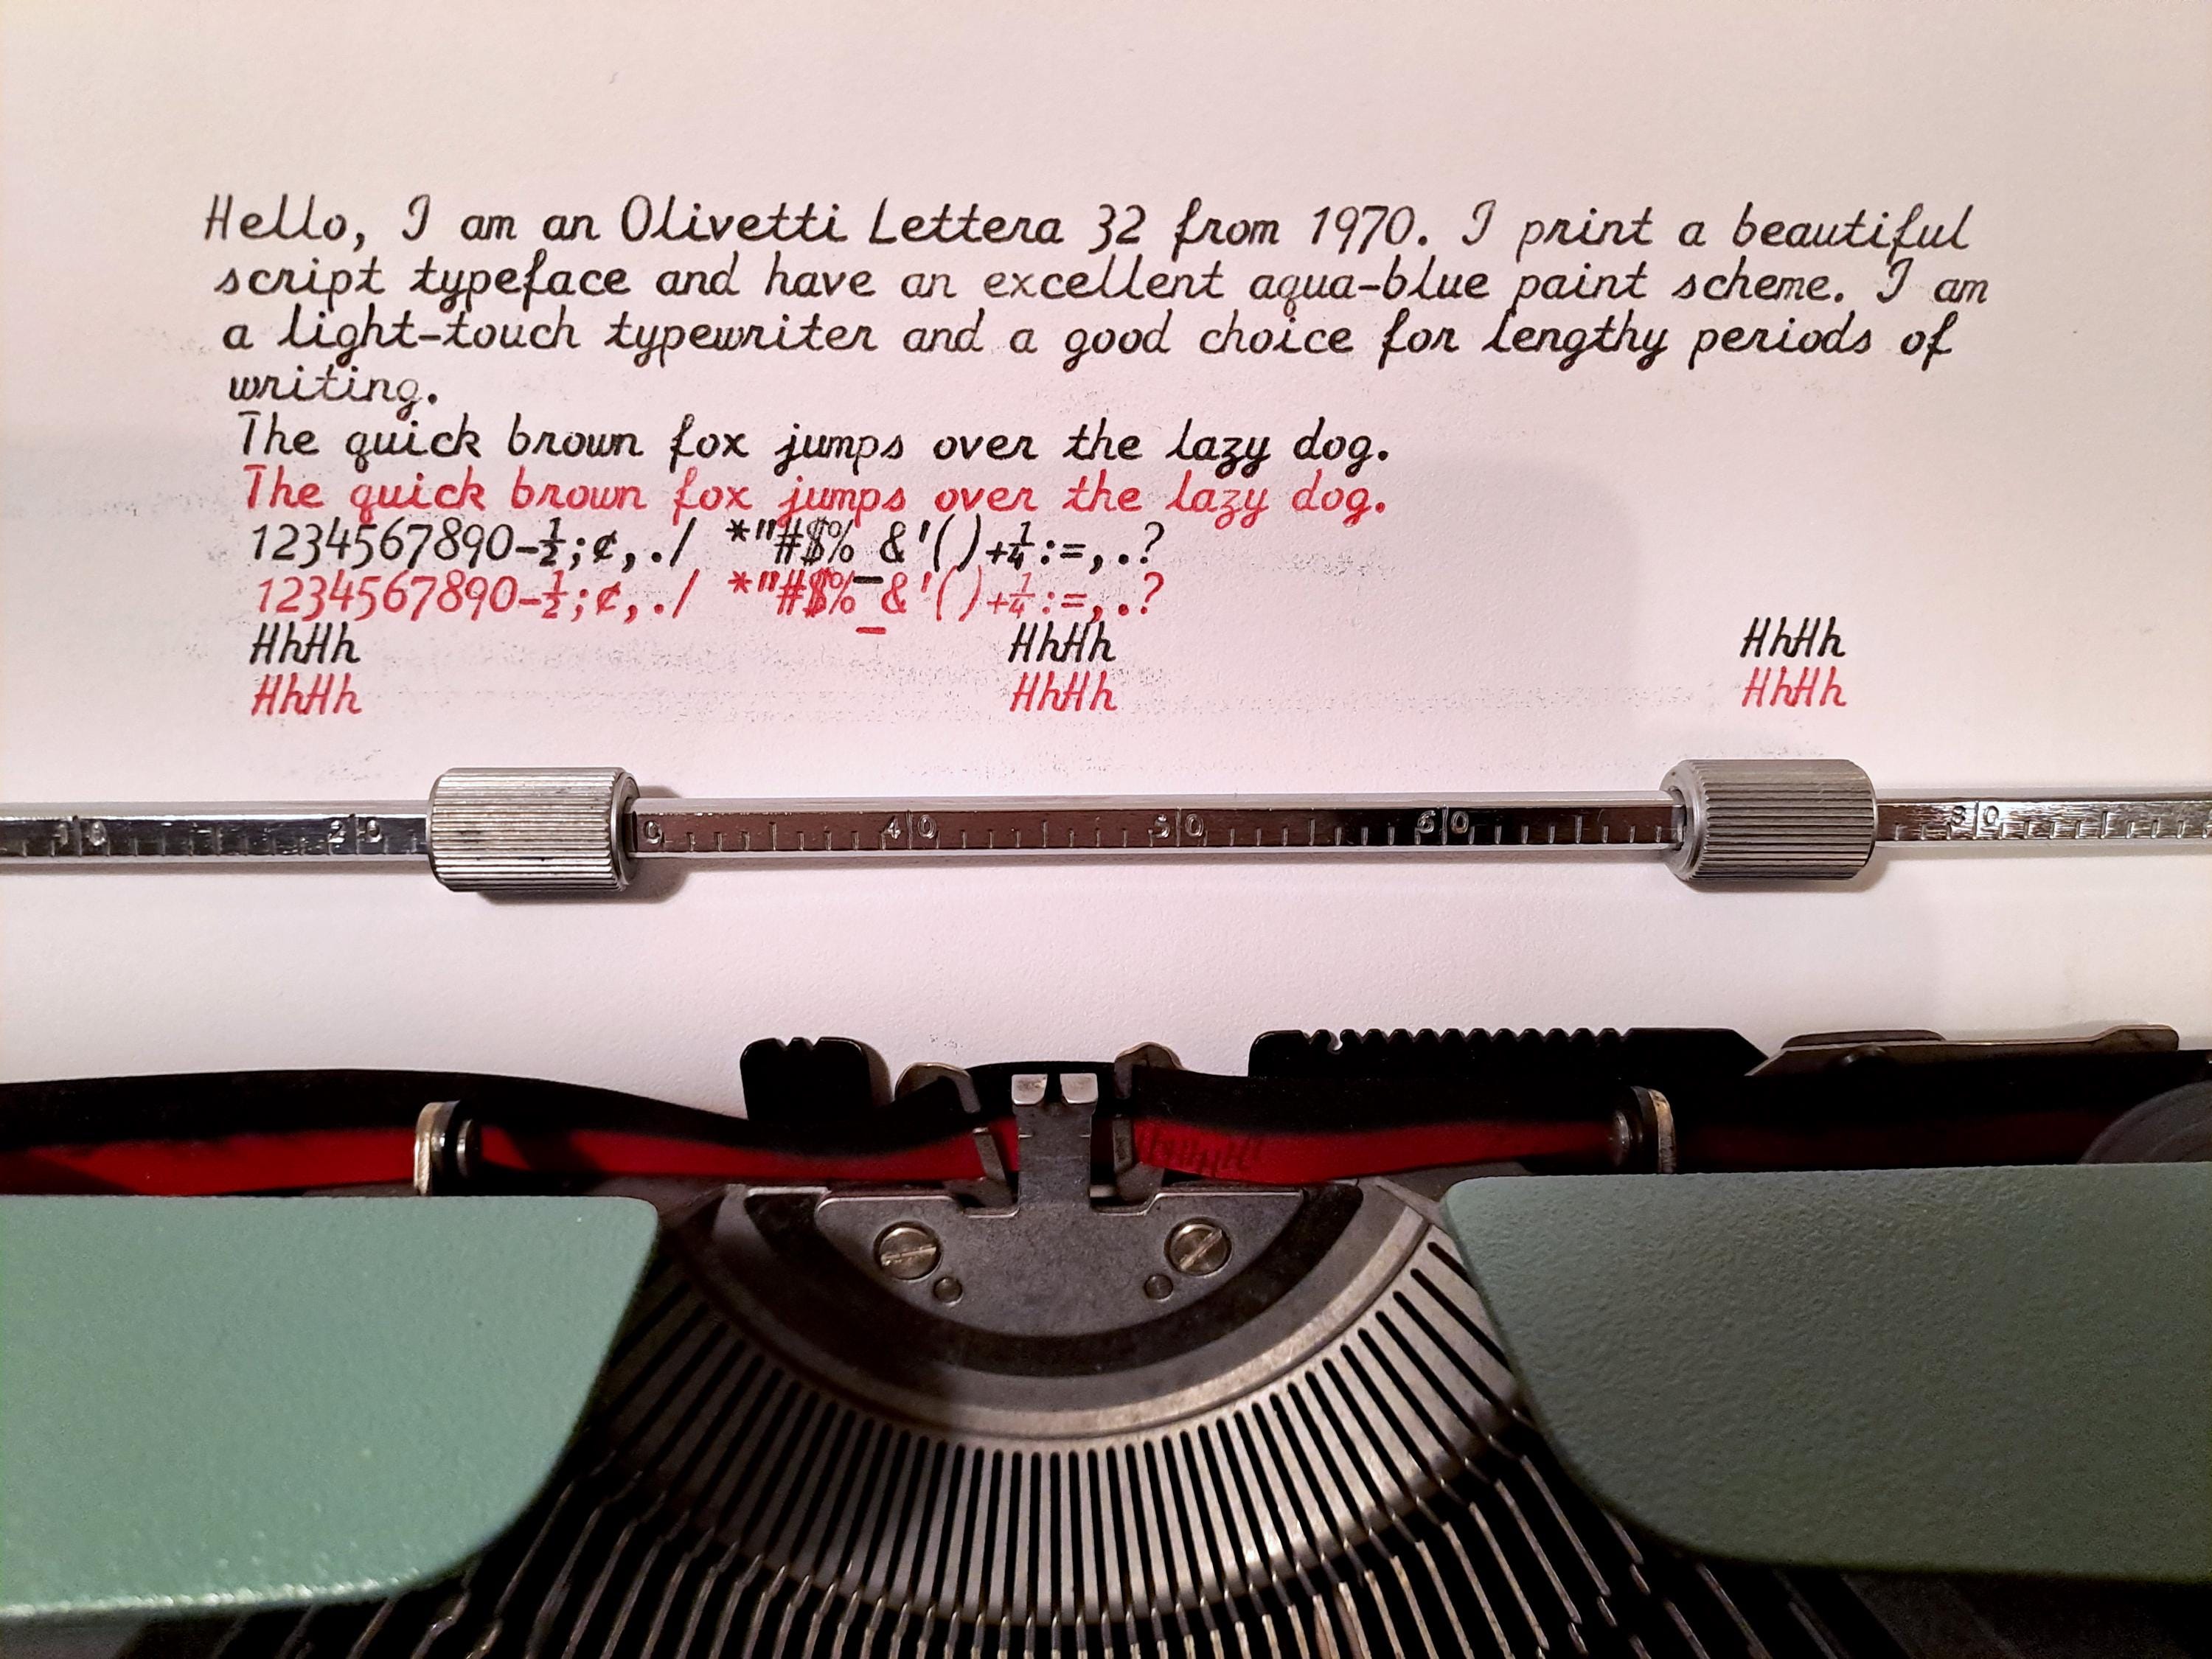 Hello, I am an Olivetti Lettera 32 from 1970. I print a beautiful
script typeface and have an excellent aqua-blue paint scheme. I am
a light-touch typewriter and a good choice for lengthy periods of
writing.
The quick brown fox jumps over the lazy dog.
The quick brown fox jumps over the lazy dog.
1234567890-½;¢,./ *"#$%_&'()+¼:=,.?
1234567890-½;¢,./ *"#$%_&'()+¼:=,.?
HhHh HhHh HhHh
HhHh HhHh HhHh
10 20 0 40 50 60 80